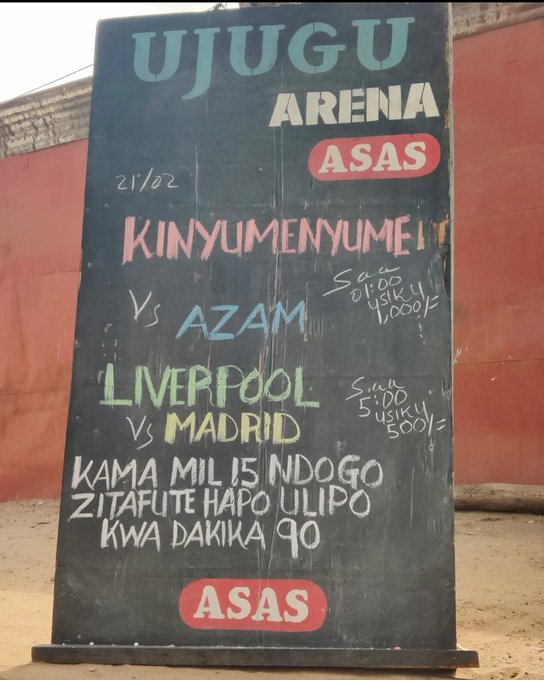 UJUGU
ARENA
ASAS
21/02
KINYUMENYUME
Saa
01:00
usiku
1,000/=
Vs AZAM
LIVERPOOL
Vs MADRID
Saa
5:00
usiku
500/=
KAMA MIL 15 NDOGO
ZITAFUTE HAPO ULIPO
KWA DAKIKA 90
ASAS